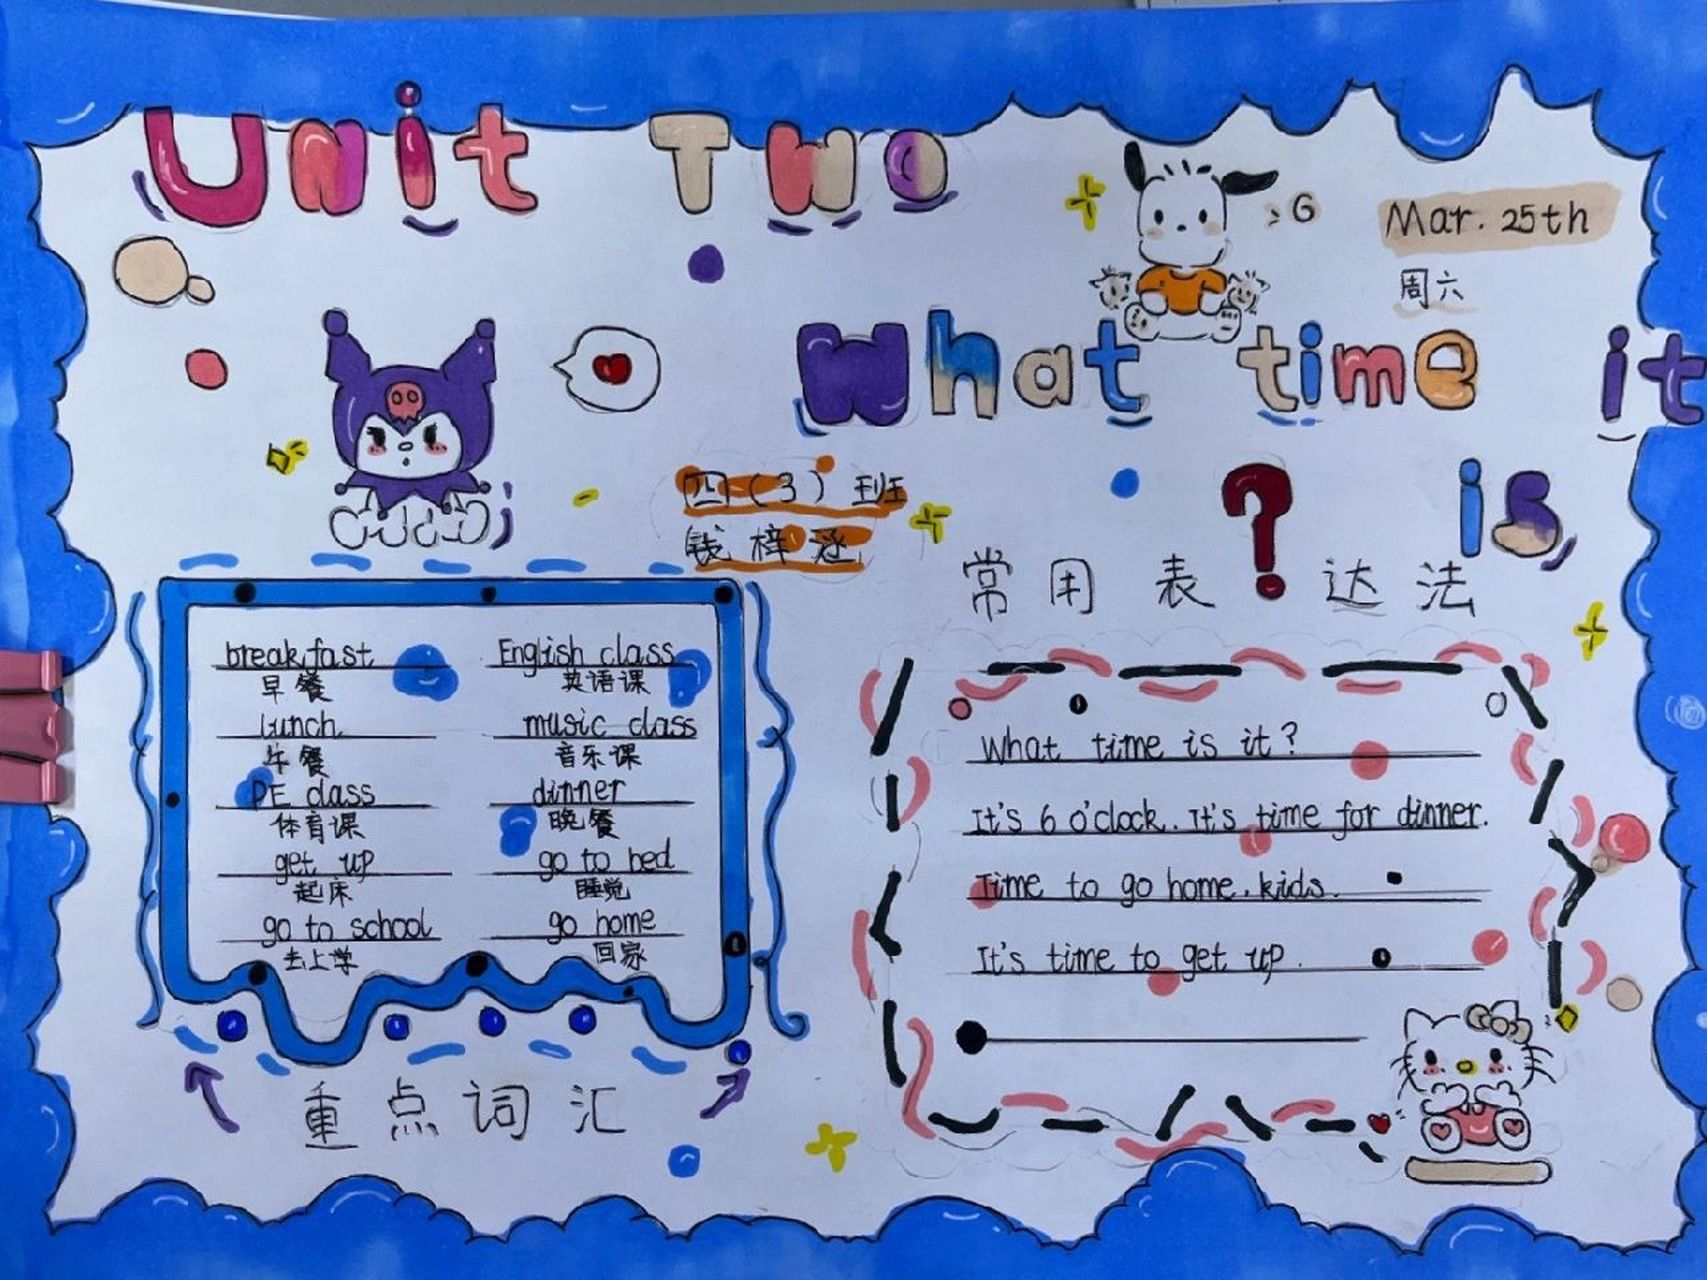 Unit Two
G
Mar. 25th
周六
What time it
is
?
四（3）班
钱梓涵
breakfast
早餐
lunch
午餐
PE class
体育课
get up
起床
go to school
去上学
English class
英语课
music class
音乐课
dinner
晚餐
go to bed
睡觉
go home
回家
重点词汇
常用表达法
What time is it?
It's 6 o'clock. It's time for dinner.
Time to go home, kids.
It's time to get up.